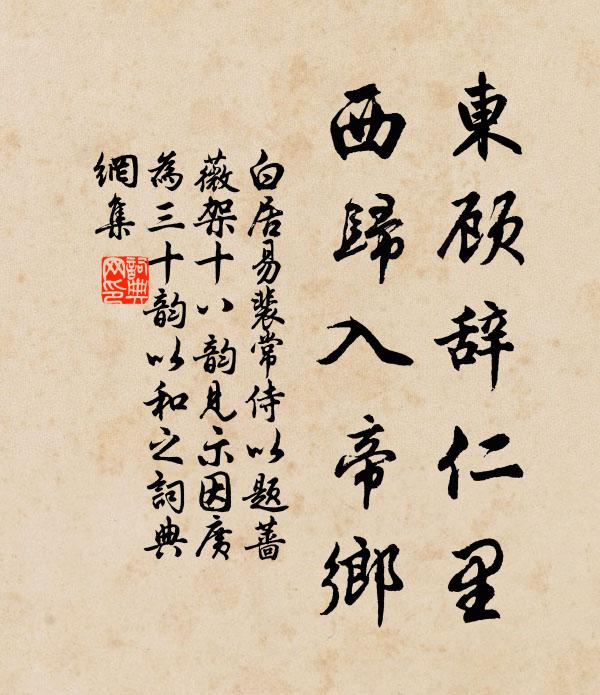 東顾辞仁里
西歸入帝鄉
白居易裴常侍以题蔷
薇架十八韵見示因廣
為三十韵以和之詞典
網集
詞典
网印